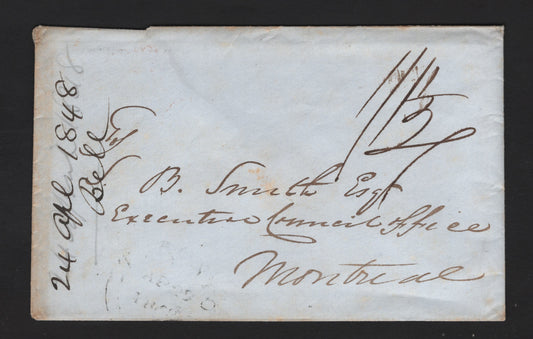 24 Apl 1848
Bell
B. Smith Esqr
Executive Council Office
Montreal